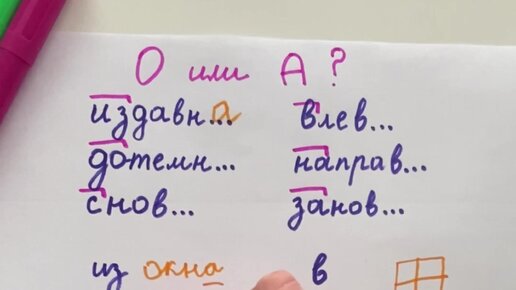 О или А?
издавна... влев...
дотемн... направ...
снов... занов...
из окна в